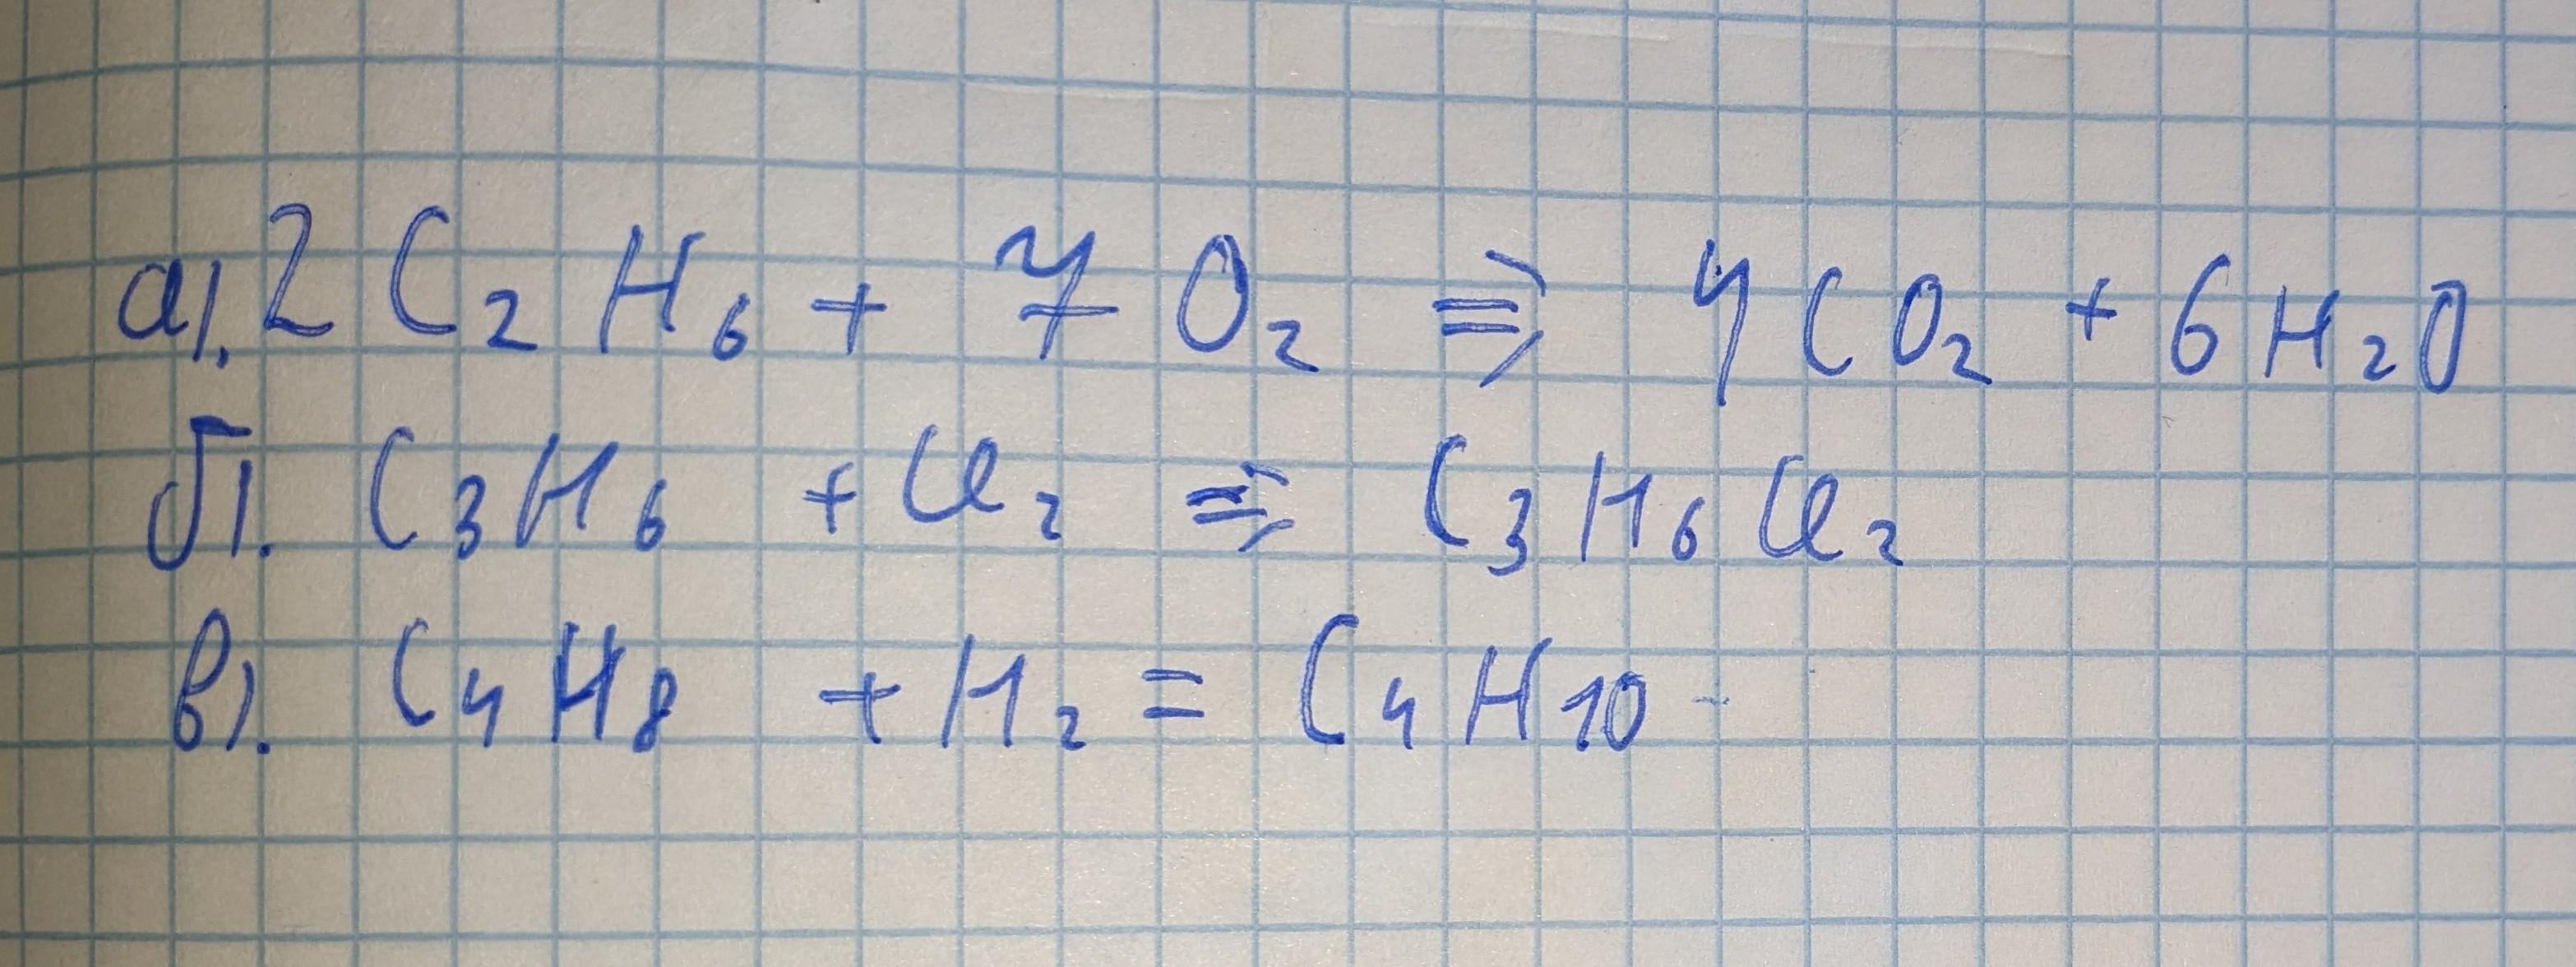 а). 2 C₂H₆ + 7 O₂ ⇒ 4 CO₂ + 6 H₂O
б). C₃H₆ + Cl₂ ⇒ C₃H₆Cl₂
в). C₄H₈ + H₂ = C₄H₁₀